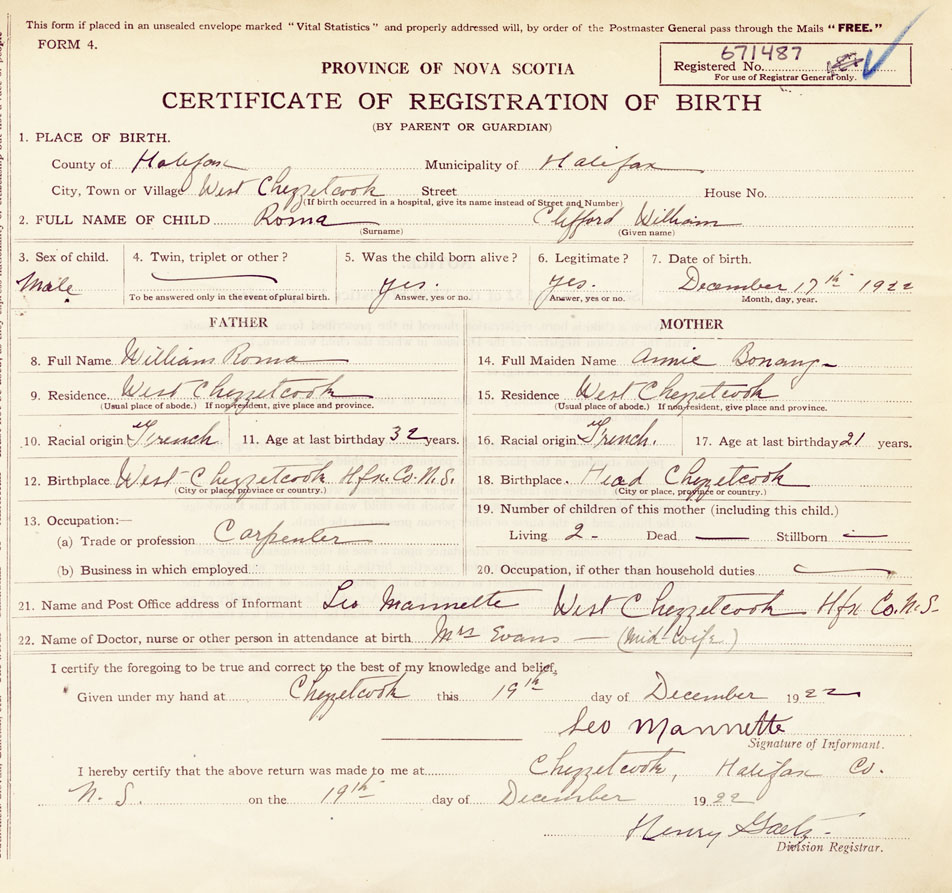 This form if placed in an unsealed envelope marked "Vital Statistics" and properly addressed will, by order of the Postmaster General pass through the Mails "FREE."
FORM 4.
671487
Registered No.
For use of Registrar General only.
PROVINCE OF NOVA SCOTIA
CERTIFICATE OF REGISTRATION OF BIRTH
(BY PARENT OR GUARDIAN)
1. PLACE OF BIRTH.
County of Halifax Municipality of Halifax
City, Town or Village West Chezzetcook Street House No.
(If birth occurred in a hospital, give its name instead of Street and Number)
2. FULL NAME OF CHILD Roma Clifford William
(Surname) (Given name)
3. Sex of child. 4. Twin, triplet or other? 5. Was the child born alive? 6. Legitimate? 7. Date of birth.
Male yes. yes. December 17th 1922
To be answered only in the event of plural birth. Answer, yes or no. Answer, yes or no. Month, day, year.
FATHER MOTHER
8. Full Name William Roma 14. Full Maiden Name Annie Bonang
9. Residence. West Chezzetcook 15. Residence West Chezzetcook
(Usual place of abode.) If non-resident, give place and province. (Usual place of abode.) If non-resident, give place and province.
10. Racial origin French 11. Age at last birthday 32 years. 16. Racial origin French. 17. Age at last birthday 21 years.
12. Birthplace West Chezzetcook Hfx. Co. N.S. 18. Birthplace. Head Chezetcook
(City or place, province or country.) (City or place, province or country.)
19. Number of children of this mother (including this child.)
13. Occupation:—
(a) Trade or profession Carpenter Living 2 - Dead — Stillborn —
(b) Business in which employed 20. Occupation, if other than household duties
21. Name and Post Office address of Informant Leo Mannette West Chezzetcook Hfx Co. N.S.
22. Name of Doctor, nurse or other person in attendance at birth Mrs Evans — (Mid-wife)
I certify the foregoing to be true and correct to the best of my knowledge and belief,
Given under my hand at Chezzetcook this 19th day of December 1922
Leo Mannette
Signature of Informant.
I hereby certify that the above return was made to me at Chezzetcook, Halifax Co.
N. S. on the 19th day of December 1922
Henry Gaetz
Division Registrar.